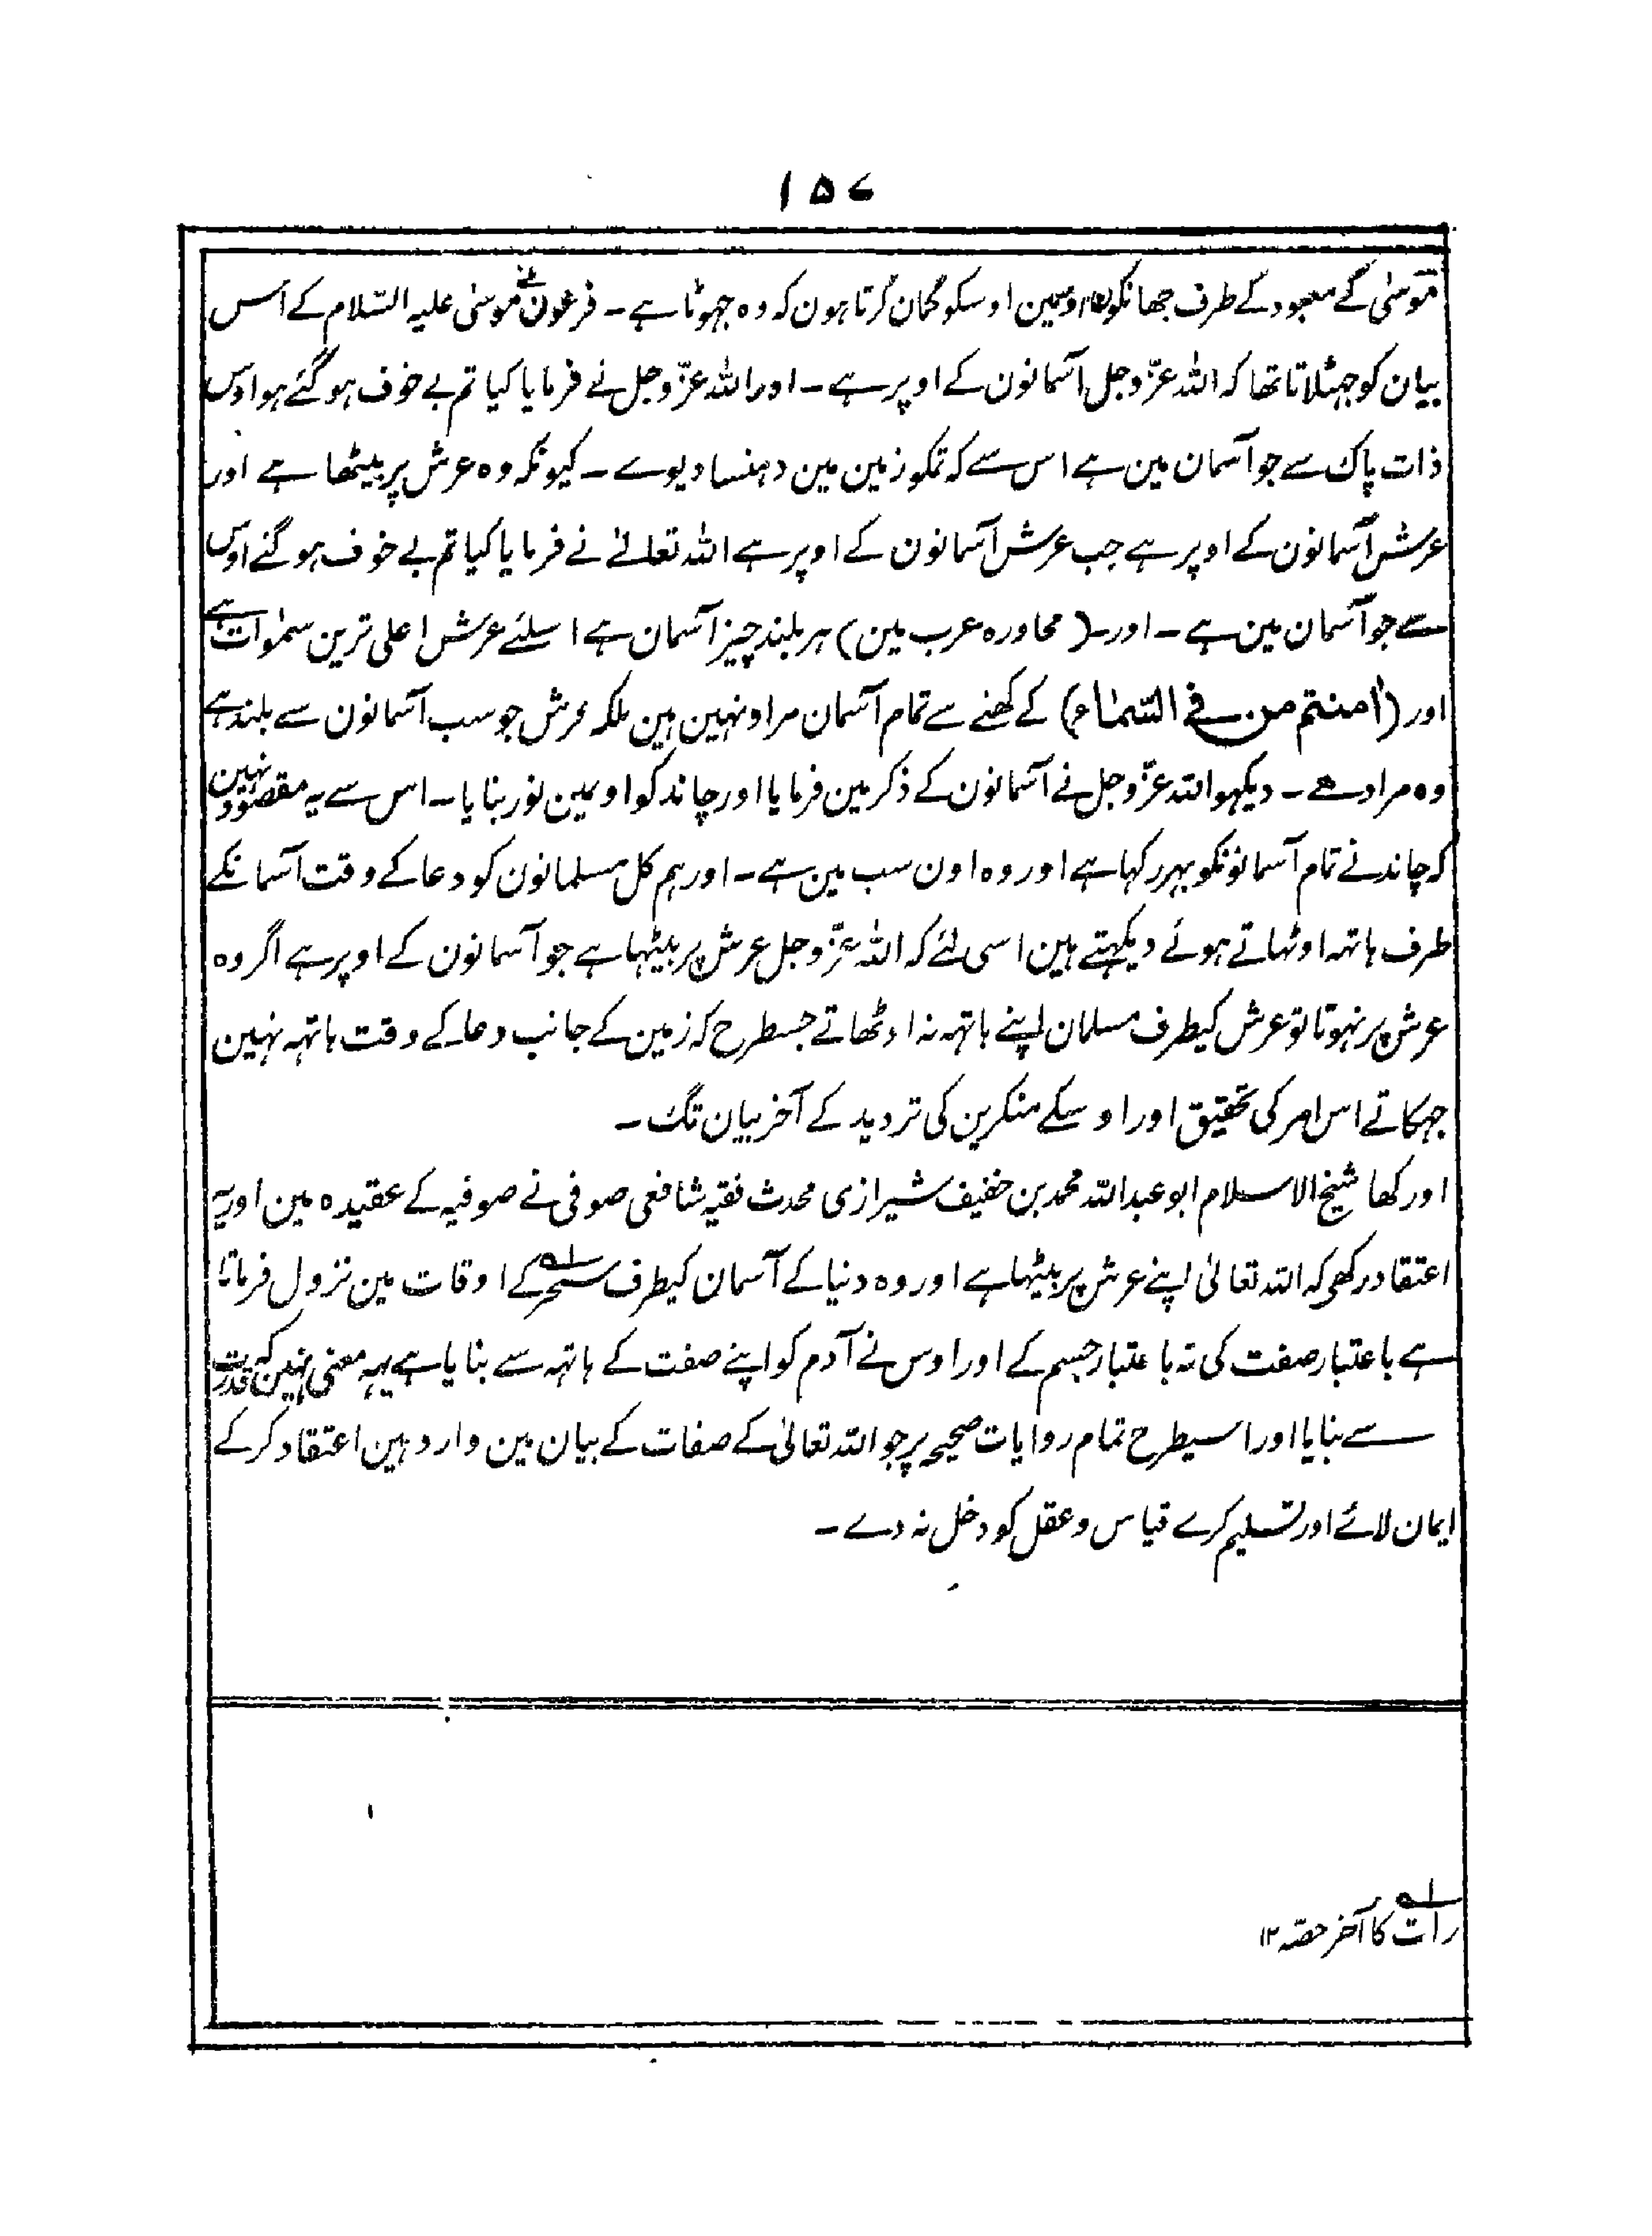 ۱۵۷
موسٰی کے معبود کے طرف جھانکوں اور مین اوسکو گمان کرتا ہون کہ وہ جہوٹا ہے ۔ فرعون نے موسٰی علیہ السّلام کے اس
بیان کو جہٹلاتا تھا کہ اللہ عزّوجل آسمانون کے اوپر ہے ۔ اور اللہ عزّوجل نے فرمایا کیا تم بے خوف ہو گئے ہو اوس
ذات پاک سے جو آسمان مین ہے اس سے کہ تمکو زمین مین دہنسا دیوے ۔ کیونکہ وہ عرش پر بیٹھا ہے اور
عرش آسمانون کے اوپر ہے جب عرش آسمانون کے اوپر ہے اللہ تعالےٰ نے فرمایا کیا تم بے خوف ہو گئے اوس
سے جو آسمان مین ہے ۔ اور ۔ ( محاورہ عرب مین ) ہر بلند چیز آسمان ہے اسلئے عرش اعلی ترین سمٰوات ہے
اور ( أمنتم من فی السّماء ) کے کھنے سے تمام آسمان مراد نہین ہین بلکہ عرش جو سب آسمانون سے بلند ہے
وہ مراد ھے ۔ دیکہو اللہ عزّوجل نے آسمانون کے ذکر مین فرمایا اور چاند کو اوسمین نور بنایا ۔ اس سے یہ مقصود نہین
کہ چاند نے تمام آسمانونکو بہر رکہا ہے اور وہ اون سب مین ہے ۔ اور ہم کل مسلمانون کو دعا کے وقت آسمانکے
طرف ہاتہہ اوٹہاتے ہوئے دیکہتے ہین اسی لئے کہ اللہ عزّوجل عرش پر بیٹہا ہے جو آسمانون کے اوپر ہے اگر وہ
عرش پر نہوتا تو عرش کیطرف مسلمان اپنے ہاتہہ نہ اوٹھاتے جسطرح کہ زمین کے جانب دعا کے وقت ہاتہہ نہین
جہکاتے اس امر کی تحقیق اور اوسکے منکرین کی تردید کے آخر بیان تک ۔
اور کھا شیخ الاسلام ابو عبد اللہ محمد بن خفیف شیرازی محدث فقیہ شافعی صوفی نے صوفیہ کے عقیدہ مین اور یہ
اعتقاد رکھو کہ اللہ تعالیٰ اپنے عرش پر بیٹہا ہے اور وہ دنیا کے آسمان کیطرف سحر لہ کے اوقات مین نزول فرماتا
ہے باعتبار صفت کی نہ باعتبار جسم کے اور اوس نے آدم کو اپنے صفت کے ہاتہہ سے بنایا ہے یہہ معنی نہین کہ قدرت
سے بنایا اور اسیطرح تمام روایات صحیحہ پر جو اللہ تعالیٰ کے صفات کے بیان مین وارد ہین اعتقاد کر کے
ایمان لائے اور تسلیم کرے قیاس و عقل کو دخل نہ دے ۔
لہ
رات کا آخر حصّہ ۱۲